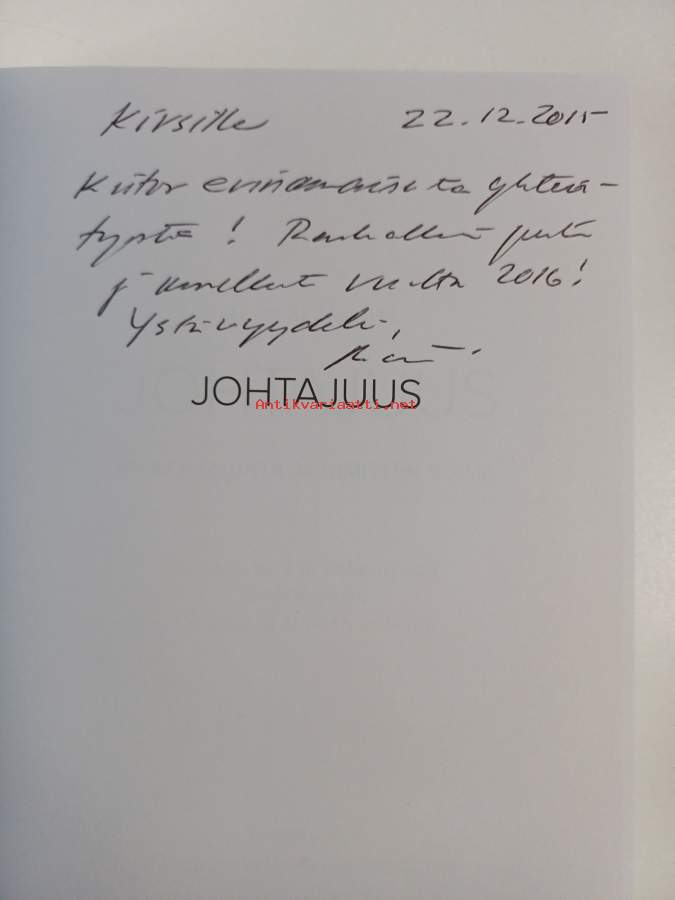 Kirsille 22.12.2015
Kiitos erinomaisesta yhteis-
työstä! Rauhallista joulua
ja onnellista vuotta 2016!
Ystävyydellä,
JOHTAJUUS
Antikvariaatti.net